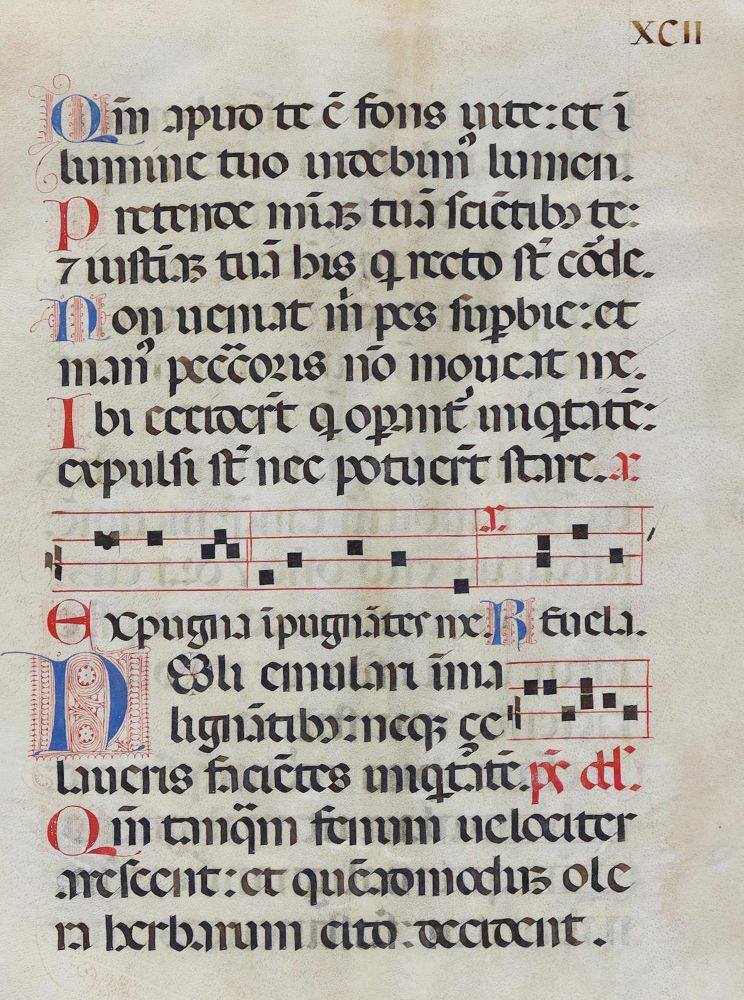 XCII
Qm̄ apud te ē fons uite: et ī
lumine tuo uidebim᷒ lumen.
Pretende mīaz tuā sciētibꝰ te:
⁊ iustīaz tuā his q recto st̄ cōrde.
Non ueniat m̄ pes suꝑbie: et
man᷒ peccōris nō moueat me.
Ibi cecidert̄ q oꝑant᷒ iniqtatē:
expulsi st̄ nec potuert̄ stare. a
a
Expugna īpugnātes me. R Eucla.
NOli emulari ī ma
lignātibꝰ: neqꝫ ze
laueris faciētes iniqtatē. ps dd.
Qm̄ tanqm̄ fenum uelociter
arescent: et quēadmoduz ole
ra herbarum cito decident.